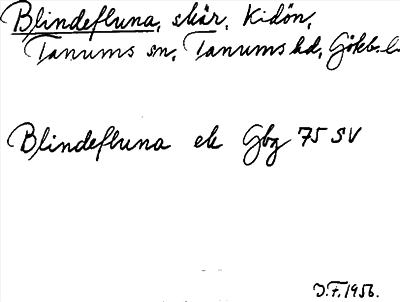 Blindefluna, skär, Kidön,
Tanums sn, Tanums hd, Gökb. l.
Blindefluna ek Gbg 75 SV
J.F. 1956.